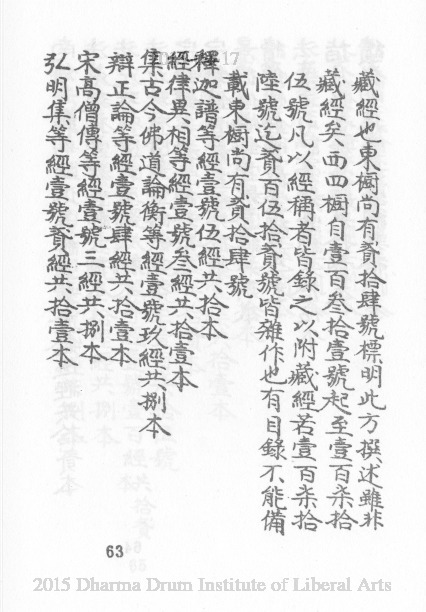 藏經也東櫥尚有貳拾肆號標明此方撰述雖非
藏經矣而四櫥自壹百叁拾壹號起至壹百柒拾
伍號凡以經稱者皆錄之以附藏經若壹百柒拾
陸號迄貳百伍拾貳號皆雜作也有目錄不能備
載東櫥尚有貳拾肆號
釋迦譜等經壹號伍經共拾本
經律異相等經壹號叁經共拾壹本
集古今佛道論衡等經壹號玖經共捌本
辯正論等經壹號肆經共拾壹本
宋高僧傳等經壹號三經共捌本
弘明集等經壹號貳經共拾壹本
63
2015 Dharma Drum Institute of Liberal Arts